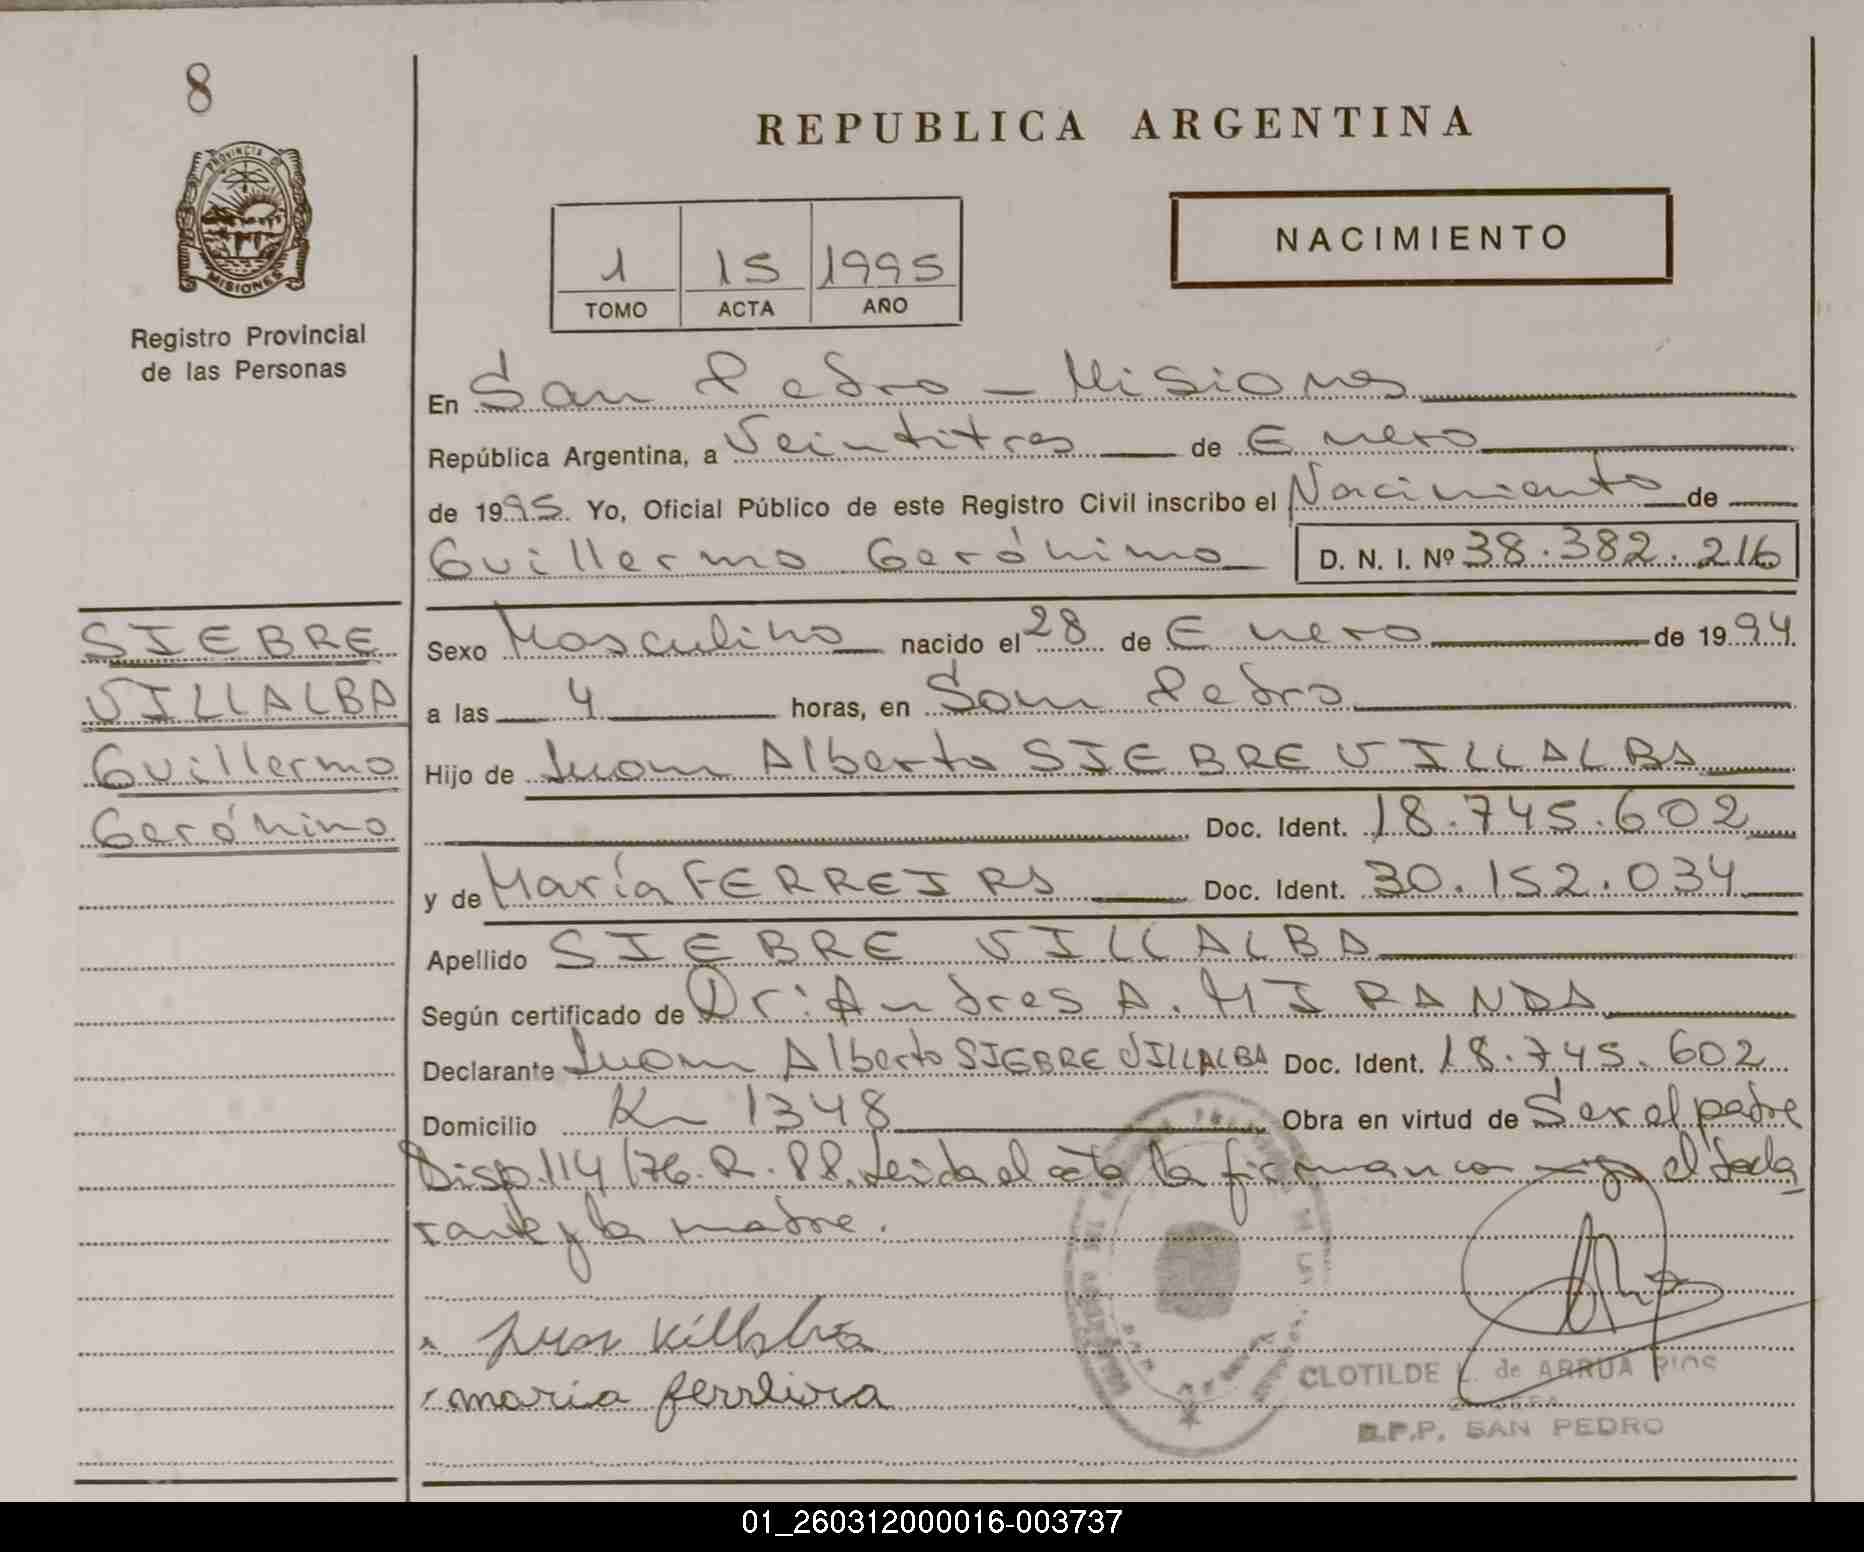 8
PROVINCIA DE
MISIONES
Registro Provincial
de las Personas
REPUBLICA ARGENTINA
1 15 1995
TOMO ACTA AÑO
NACIMIENTO
En San Pedro - Misiones
República Argentina, a Veintitres de Enero
de 1995. Yo, Oficial Público de este Registro Civil inscribo el Nacimiento de
Guillermo Gerónimo D. N. I. Nº 38.382.216
SIEBRE
VILLALBA
Guillermo
Gerónimo
Sexo Masculino nacido el 28 de Enero de 1994
a las 4 horas, en San Pedro
Hijo de Juan Alberto SIEBRE VILLALBA
Doc. Ident. 18.745.602
y de María FERREIRA Doc. Ident. 30.152.034
Apellido SIEBRE VILLALBA
Según certificado de Dr: Andres A. MIRANDA
Declarante Juan Alberto SIEBRE VILLALBA Doc. Ident. 18.745.602
Domicilio Km 1348 Obra en virtud de Ser el padre
Disp. 114/76. R. PP. Leida el acta la firman con migo el decla
rante y la madre.
Juan Villalba
maria ferreira
CLOTILDE L. de ARRUA RIOS
R.P.P. SAN PEDRO
01_260312000016-003737